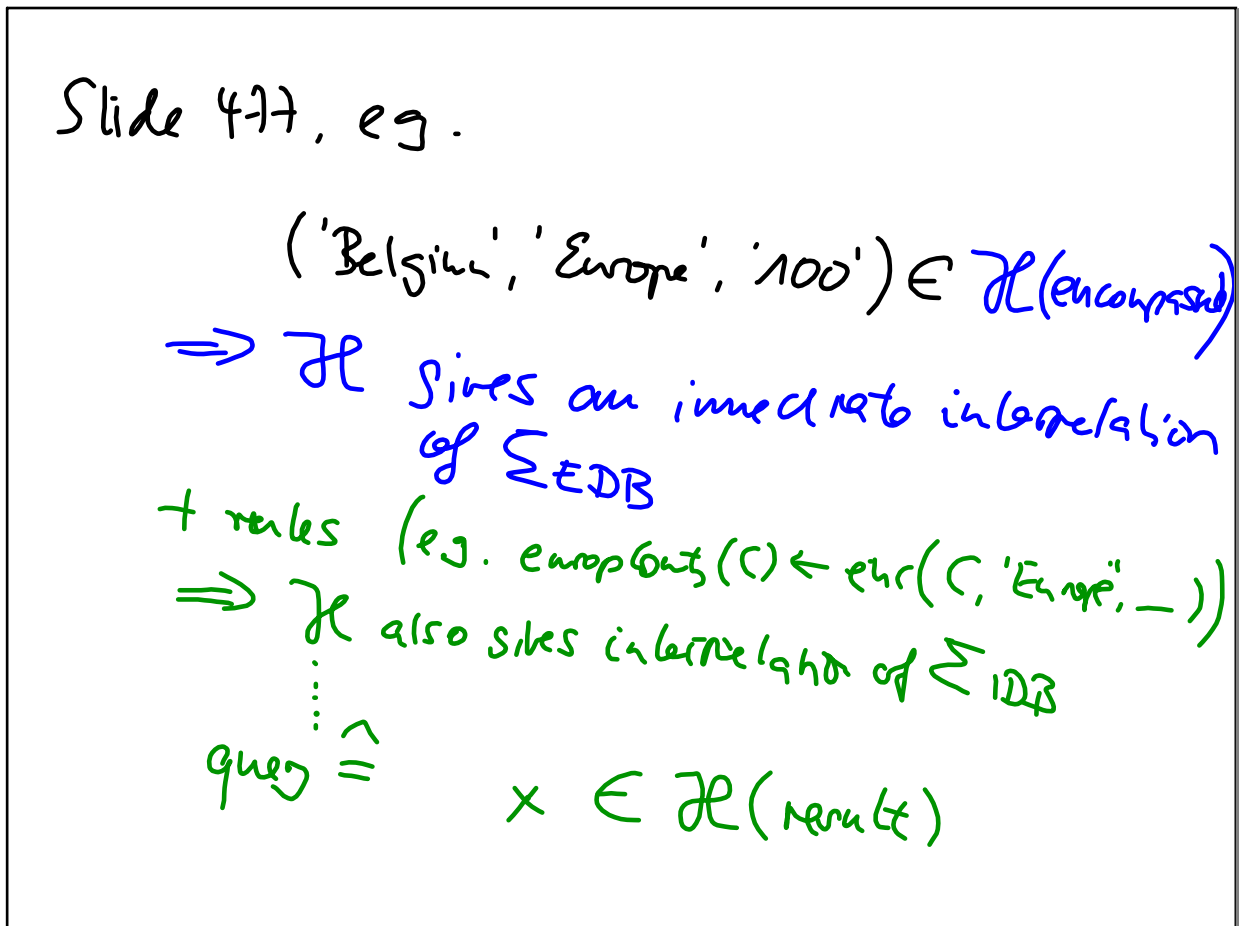 Slide 477, eg.
('Belgium', 'Europe', '100') ∈ ℋ(encompassed)
⇒ ℋ gives an immediate interpretation
of Σ EDB
+ rules (eg. europCountry(C) ← enc(C, 'Europe', _))
⇒ ℋ also gives interpretation of Σ IDB
query ≙ x ∈ ℋ(result)